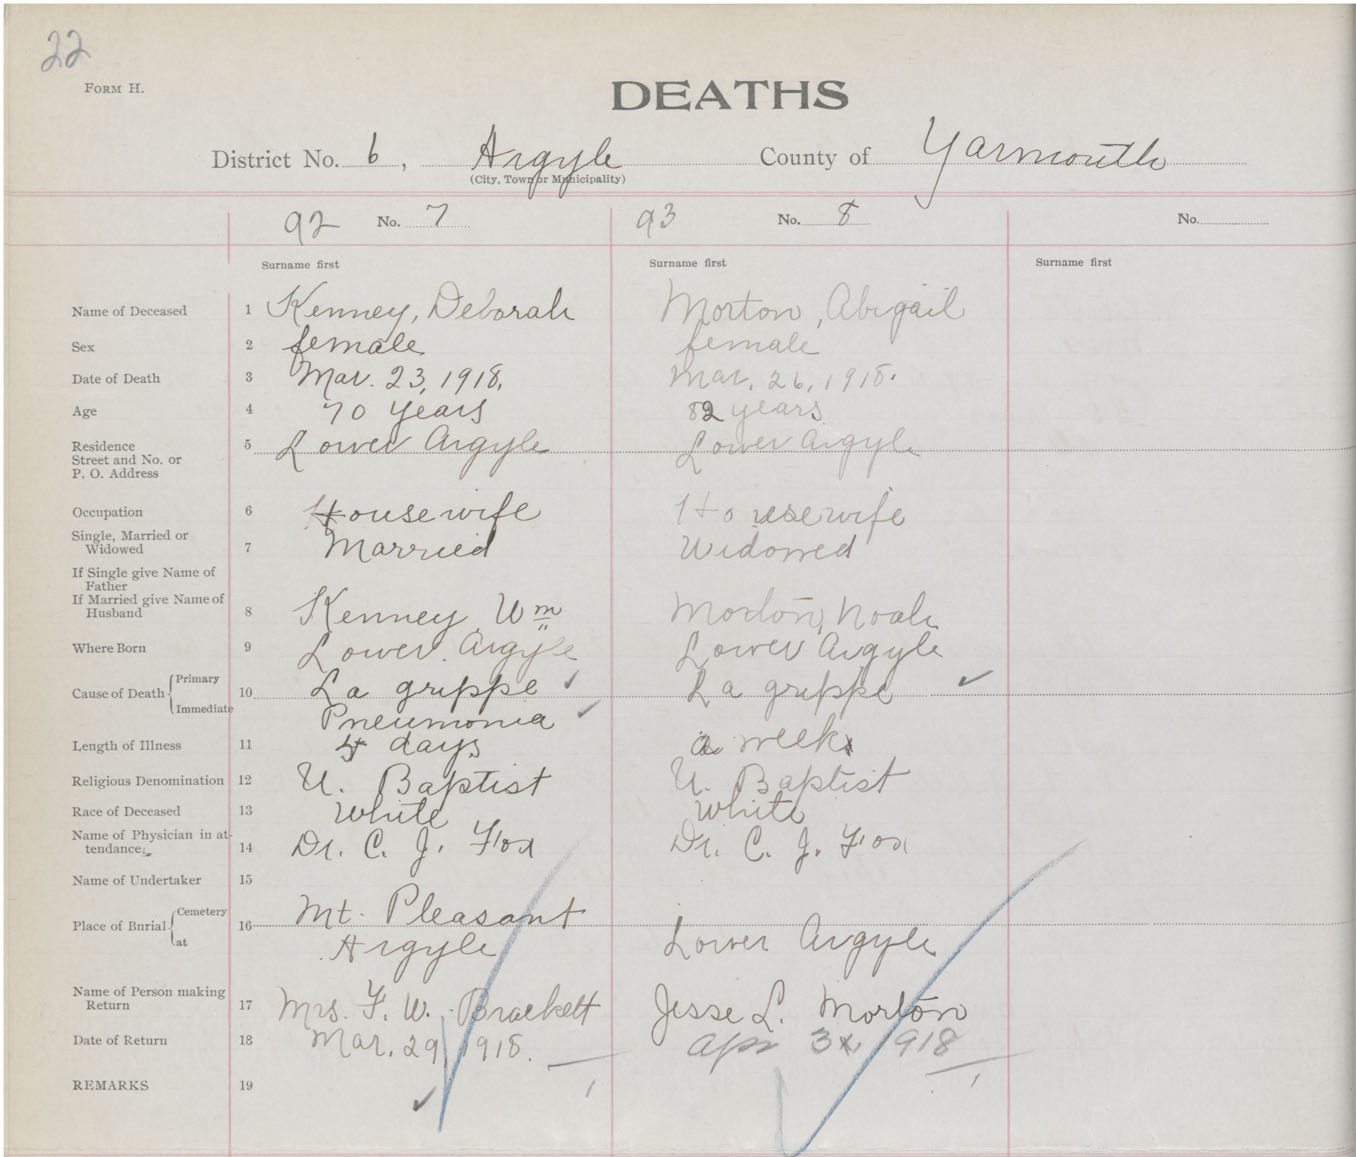 22
FORM H.
DEATHS
District No. 6, Argyle County of Yarmouth
(City, Town or Municipality)
92 No. 7 93 No. 8 No.
Surname first Surname first Surname first
Name of Deceased 1 Kenney, Deborah Morton, Abigail
Sex 2 female female
Date of Death 3 Mar. 23, 1918. Mar. 26, 1918.
Age 4 70 years 82 years
Residence 5 Lower Argyle Lower Argyle
Street and No. or
P. O. Address
Occupation 6 Housewife Housewife
Single, Married or
Widowed 7 Married Widowed
If Single give Name of
Father
If Married give Name of
Husband 8 Kenney, Wm Morton, Noah
Where Born 9 Lower Argyle Lower Argyle
Cause of Death Primary 10 La grippe ✓ La grippe ✓
Immediate Pneumonia ✓
Length of Illness 11 4 days a week
Religious Denomination 12 U. Baptist U. Baptist
Race of Deceased 13 White White
Name of Physician in at-
tendance 14 Dr. C. J. Fox Dr. C. J. Fox
Name of Undertaker 15
Place of Burial Cemetery 16 Mt. Pleasant
at Argyle Lower Argyle
Name of Person making
Return 17 Mrs. F. W. Brackett Jesse L. Morton
Date of Return 18 Mar. 29, 1918. Apr 3 1918
REMARKS 19